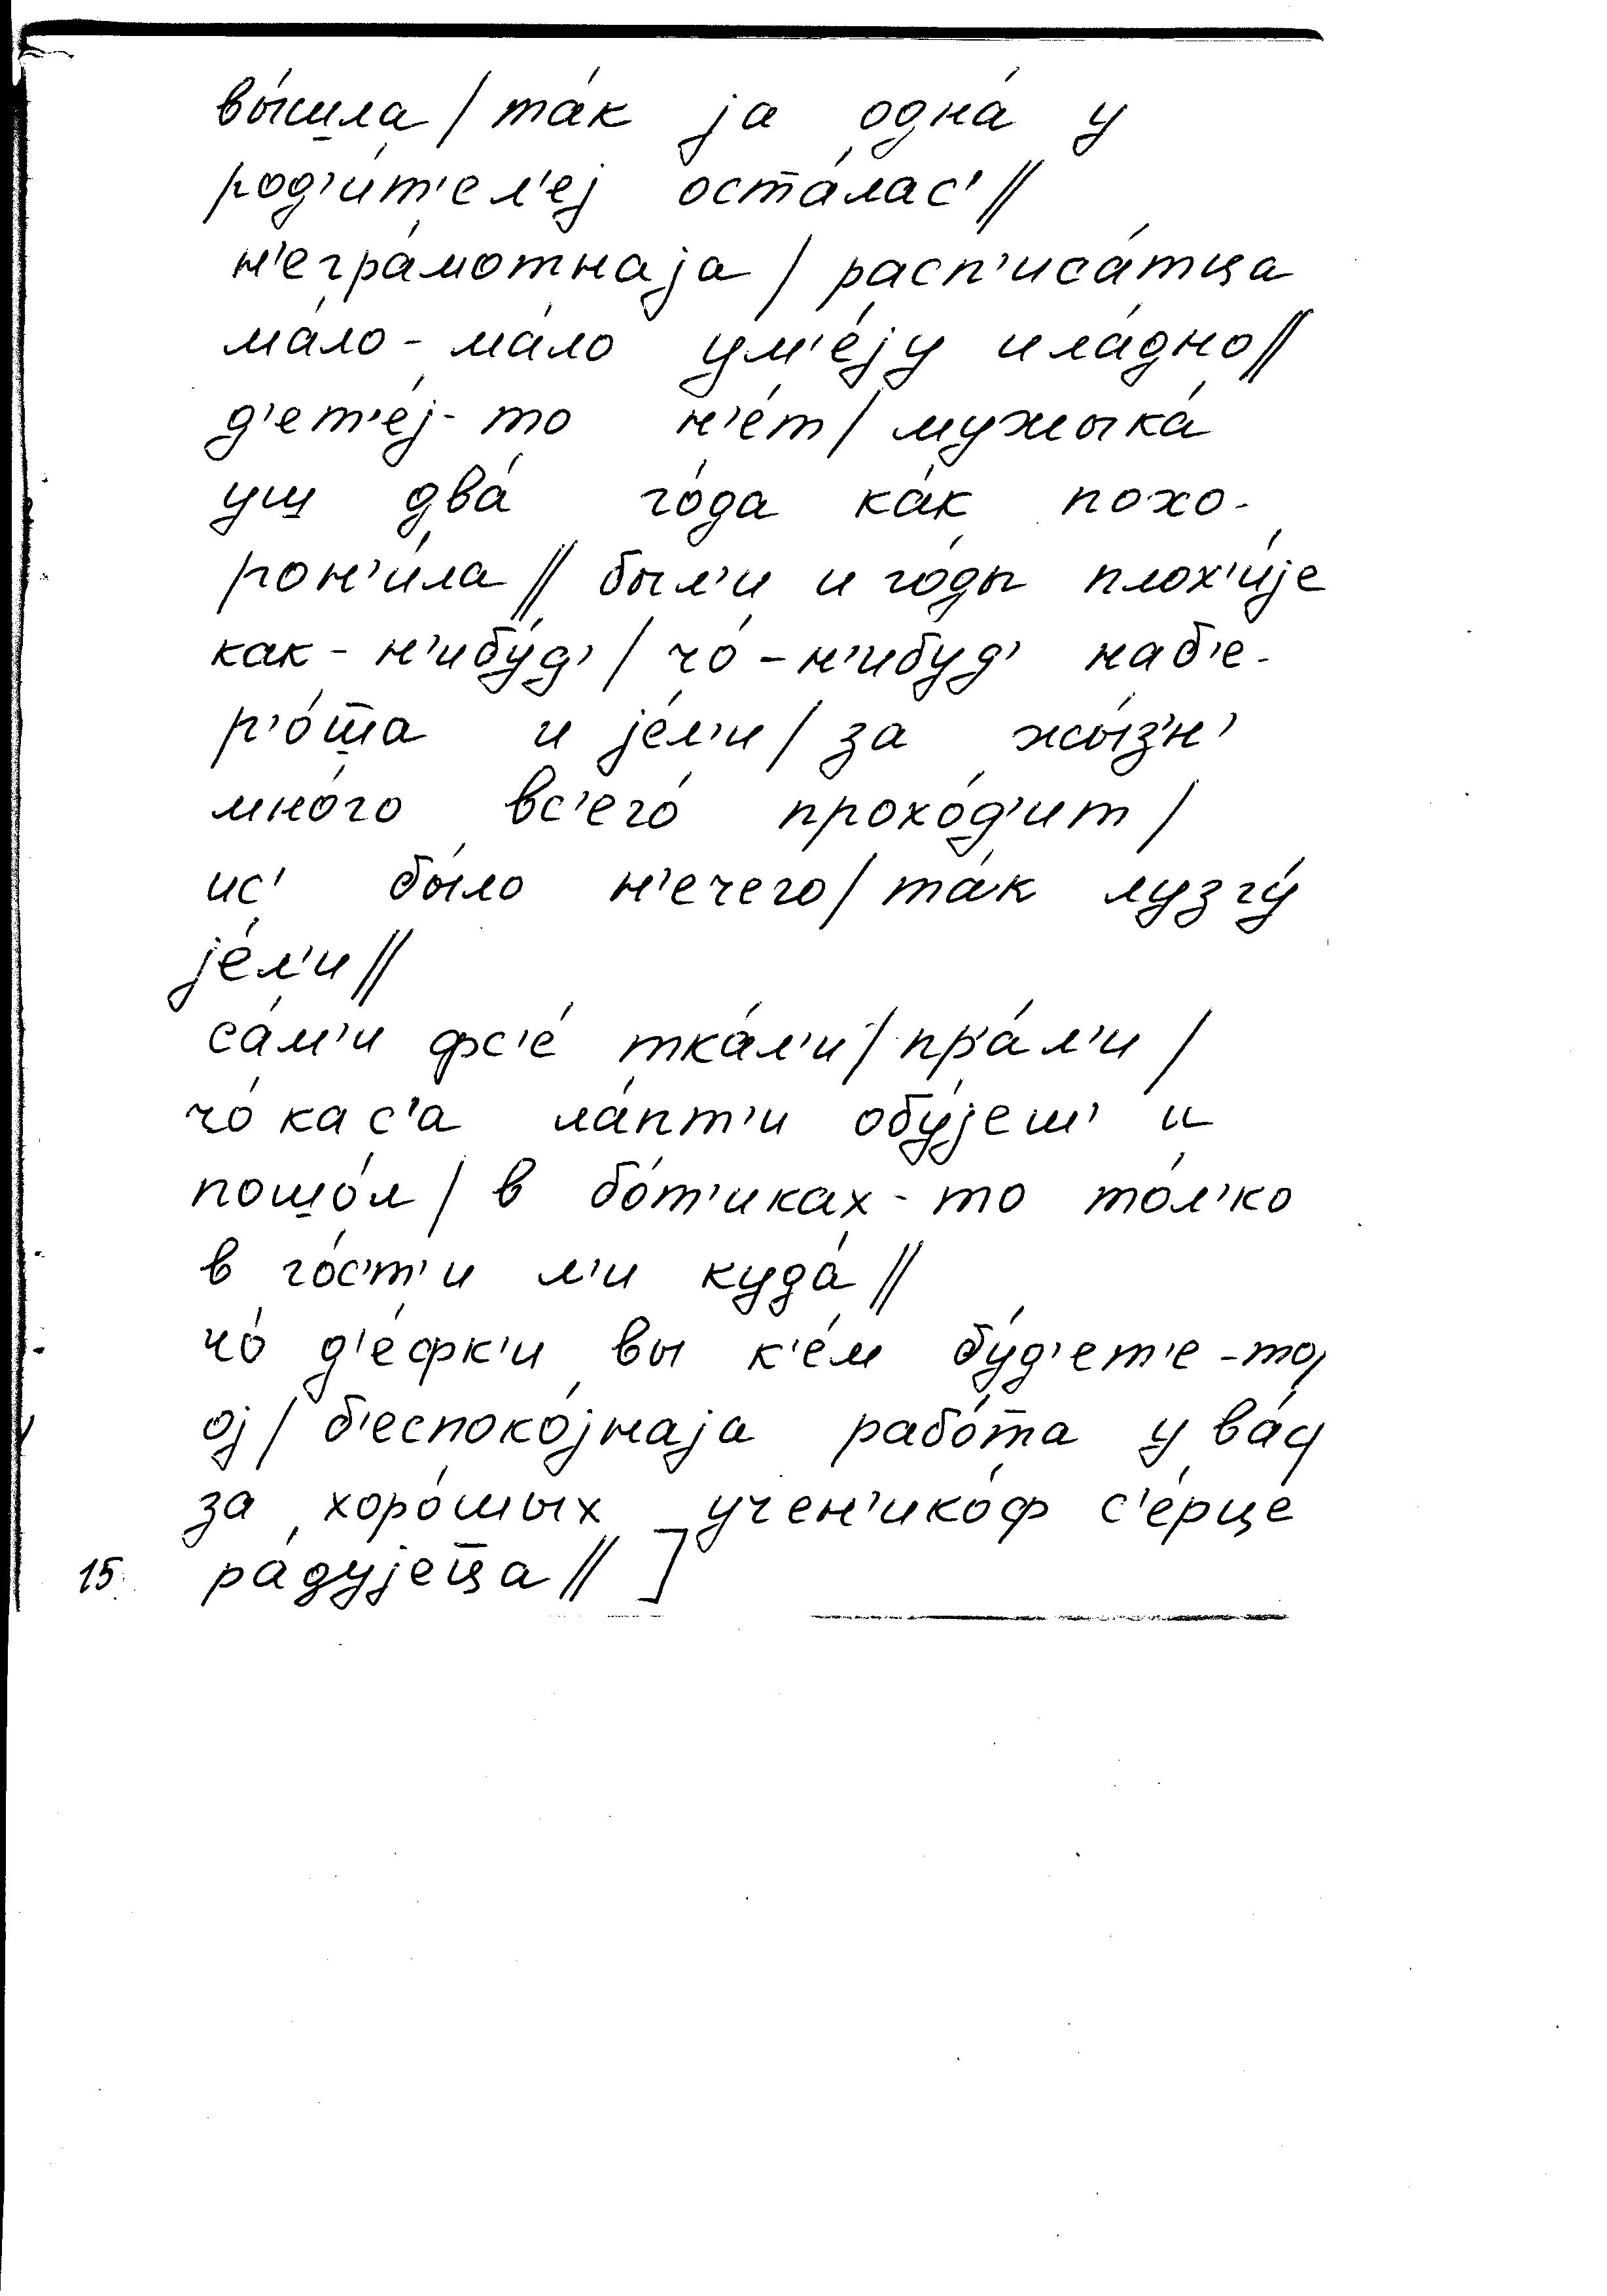 вы́шла / та́к ја одна́ у
род'и́т'ел'еј оста́лас' //
н'егра́мотнаја / расп'иса́тца
ма́ло - ма́ло ум'е́ју и ла́дно //
д'ет'е́ј- то н'е́т / мужыка́
уш два́ го́да ка́к похо-
рон'и́ла // был'и и го́ды плох'и́је
как - н'ибу́д' / чо́ - н'ибуд' наб'е-
р'о́т̅а и је́л'и / за жы́з'н'
мно́го вс'его́ прохо́д'ит /
ис' бы́ло н'ечего / та́к лузгу́
је́л'и //
са́м'и фс'е́ тка́л'и / пр'а́л'и /
чо́ кас'а ла́пт'и обу́јеш' и
пошо́л / в бо́т'иках - то то́л'ко
в го́с'т'и л'и куда́ //
чо́ д'е́фк'и вы к'е́м бу́д'ет'е - то/
ој / б'еспоко́јнаја рабо́та у ва́с/
за хоро́шых учен'ико́ф с'е́рце
15. ра́дујец̅а // ]